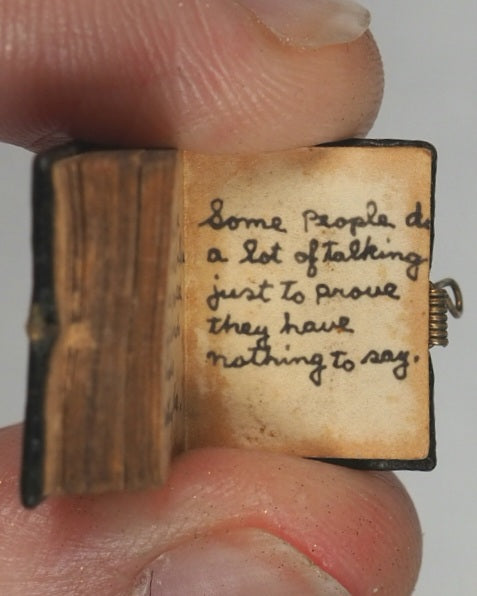 Some People do
a lot of talking
just to prove
they have
nothing to say.